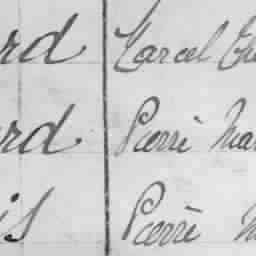 rd Marcel
rd Pierre Mar
is Pierre M